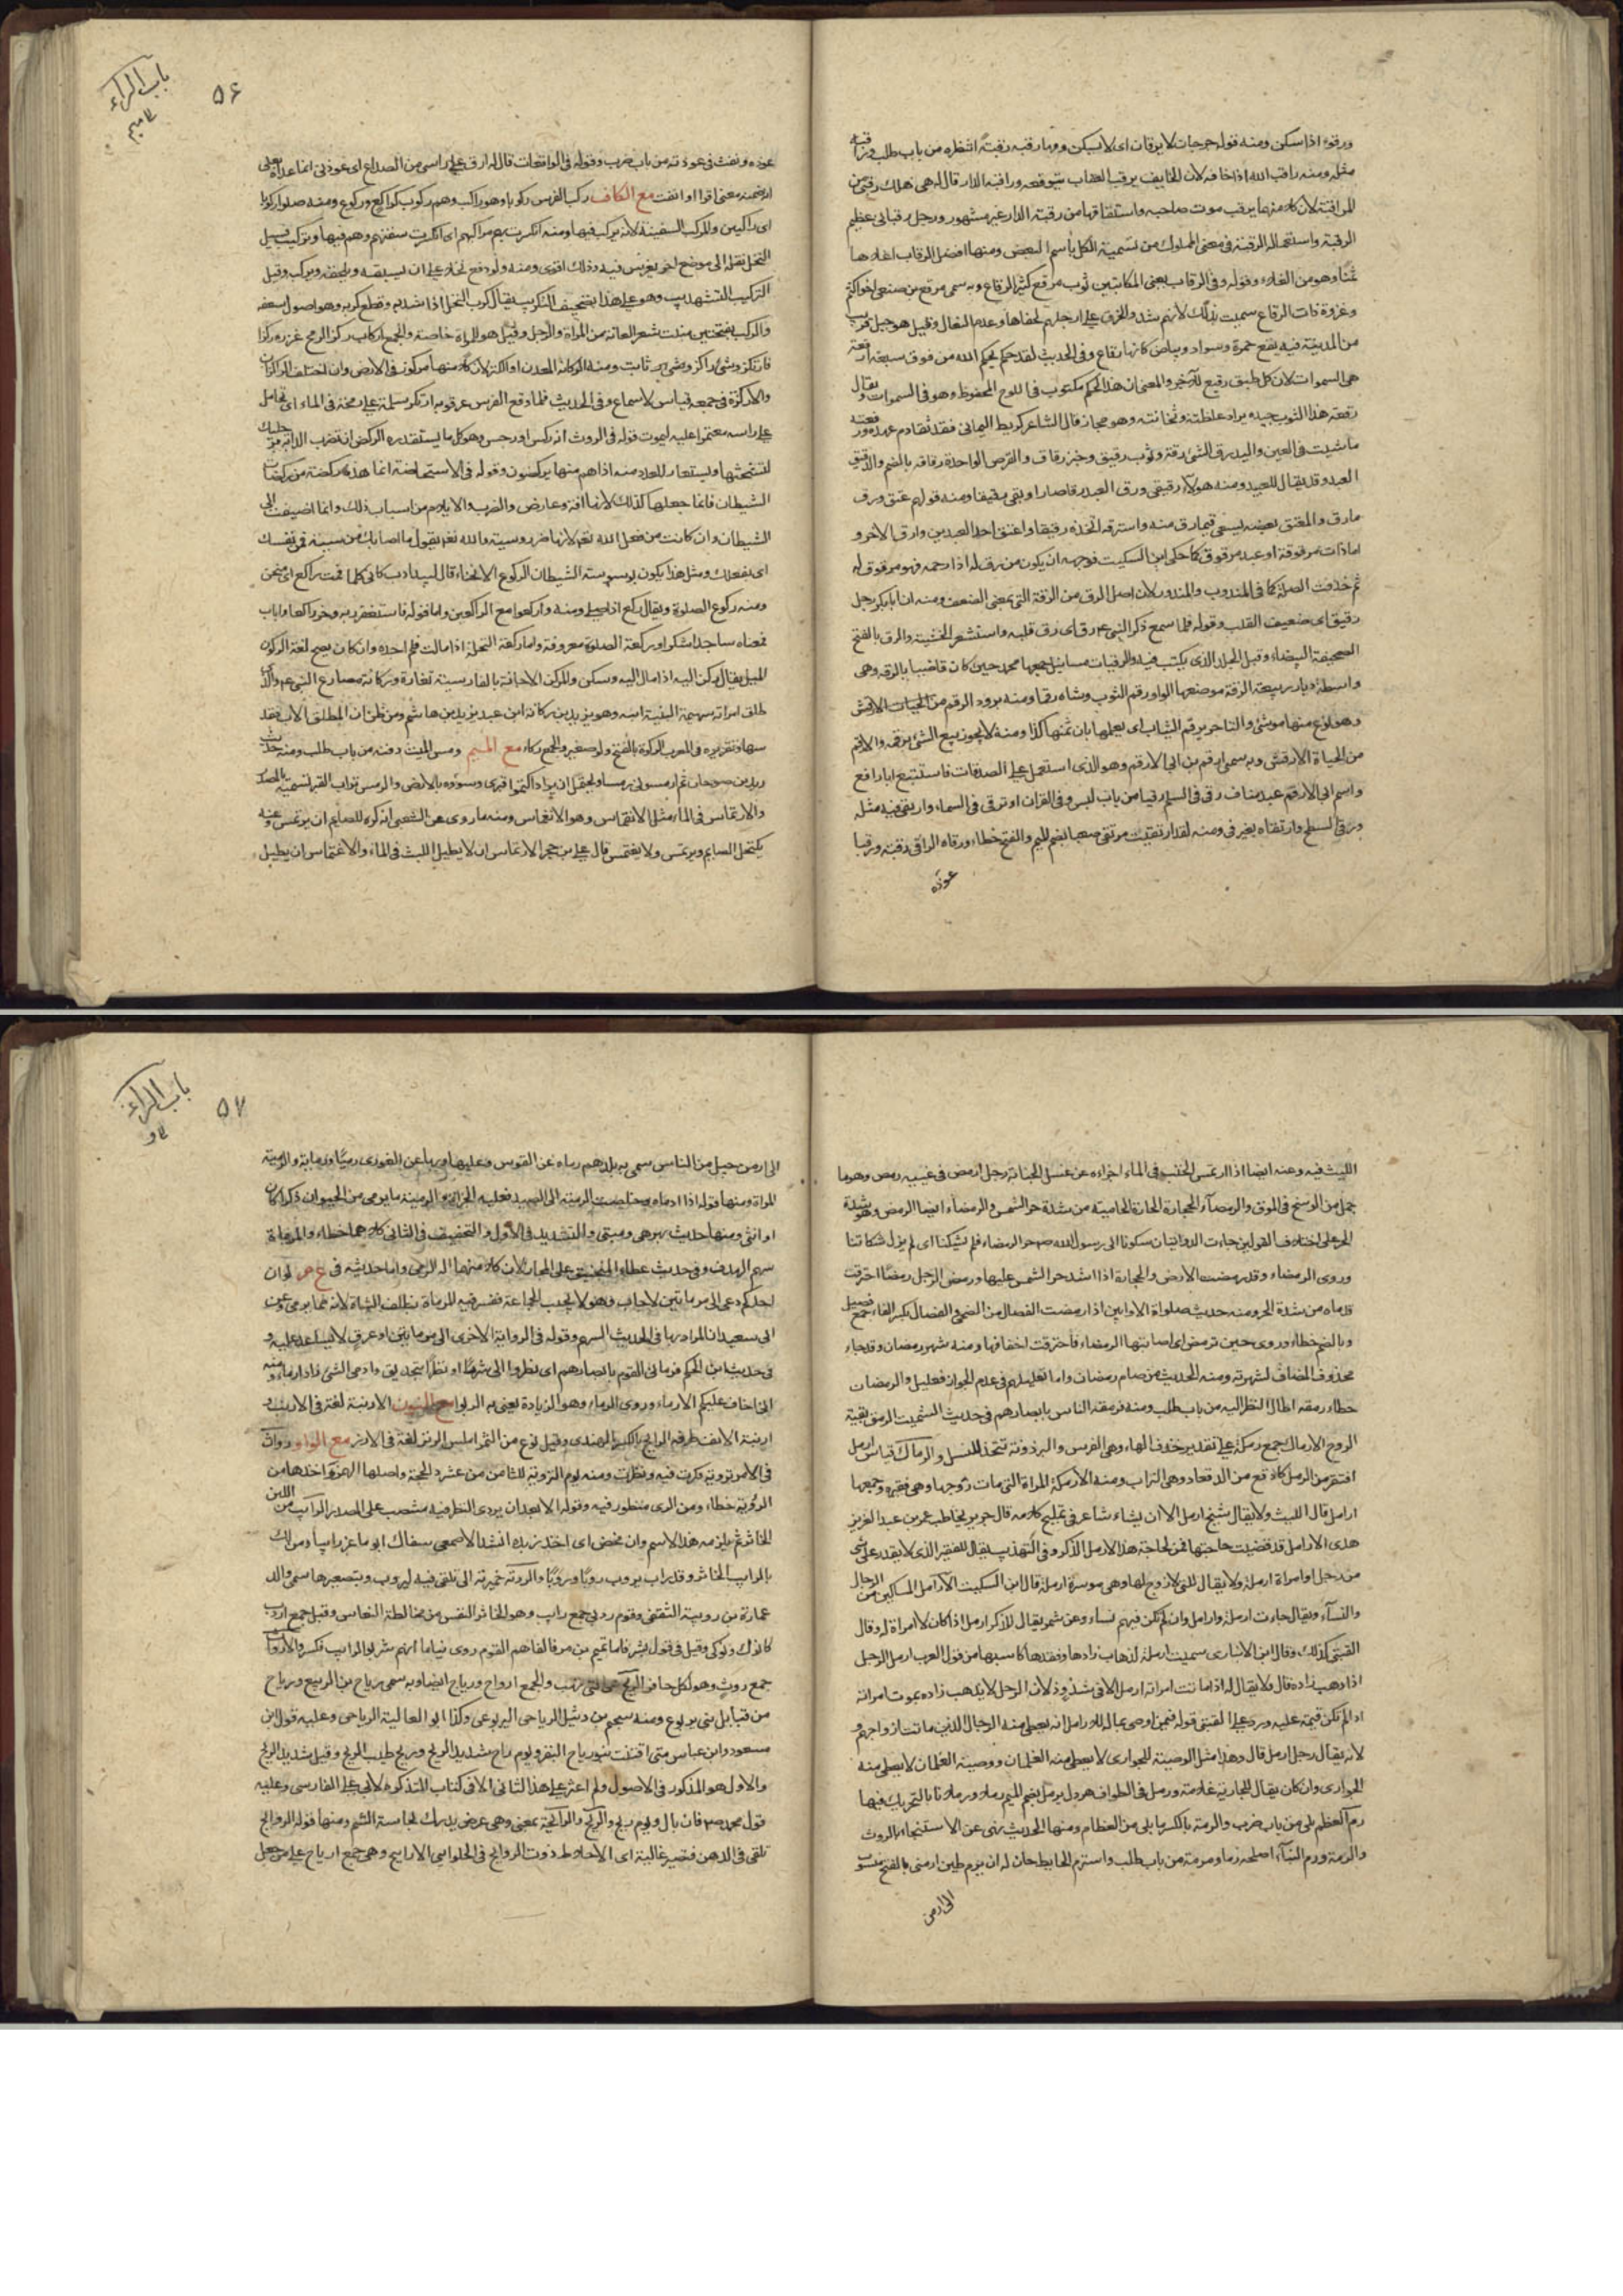 ورقوء اذا سكن ومنه قوله جرحات لا يرقان اى لا يسكن دمها رقبه رقبة انتظره من باب طلب وراقبه
مثله ومنه راقب الله اذا خافه لان الخايف يرقب العقاب يتوقعه وراقبه الدار قال له هى
للمراقبة لان كلا منهما يرقب موت صاحبه واشتقاقها من رقبة الدار غير مشهور ورجل رقبانى عظيم
الرقبة واستعمال الرقبة فى معنى المملوك من تسمية الكل باسم البعض ومنها افضل الرقاب اغلاها
ثمنا وهو من الغلاء وقوله وفى الرقاب يعنى المكاتبين ثوب مرقع كثير الرقاع وبه سمى مرقع بن صيفى
وغزوة ذات الرقاع سميت بذلك لانهم شدوا الخرق على ارجلهم لحفاها وعدم النعال وقيل هو جبل قريب
من المدينة فيه بقع حمرة وسواد وبياض كانها رقاع وفى الحديث لقد حكم بحكم الله من فوق سبعة ارقعة
هى السموات لان كل طبق رقيع للاخر والمعنى ان هذا الحكم مكتوب فى اللوح المحفوظ وهو فى السموات يقال
رقعة هذا الثوب جيده يراد غلظته وثخانته وهو مجاز قال الشاعر كريط اليمانى قد تقادم عهده ورقعته
ما شئت فى العين واليد رق الشئ رقة وثوب رقيق وخبز رقاق والقرص الواحدة رقاقه بالضم والرقيق
العبد وقد يقال للعبيد ومنه هولاء رقيقى ورق العبد رقا صار او بقى رقيقا ومنه قولهم عتق ورق
مارق والمعتق بعضه يسعى فيما رق منه واسترقه اتخذه رقيقا واعتق احد العبدين وارق الاخر و
اما ذات مرقوقة او عبد مرقوق كما حكى ابن السكيت فوجهه ان يكون من رق له اذا رحمه فهو مرقوق له
ثم حذفت الصلة كما فى المندوب والمندور لان اصل الرق من الرقة التى بمعنى الضعف ومنه ان ابا بكر رجل
رقيق اى ضعيف القلب وقوله فلما سمع ذكر النبى عم رق اى رق قلبه واستشعر الخشية والرق بالفتح
الصحيفة البيضاء وقيل الجلد الذى يكتب فيه والرقيات مسائل جمعها محمد حين كان قاضيا بالرقه وهى
واسطة ديار ربيعة الرقة موضعها الواو رقم الثوب وشاه رقما ومنه برود الرقم
وهو نوع منها موشى والتاجر يرقم الثياب اى يعلمها بان ثمنها كذا ومنه لا يجوز بيع الشئ برقمه والارقم
من الحياة الارقش وبه سمى ارقم بن ابى الارقم وهو الذى استعمل على الصدقات فاستتبع ابا رافع
واسم ابى الارقم عبد مناف رقى فى السلم رقيا من باب لبس وفى القران او ترقى فى السماء وارتقى فيه مثله
ورقى السطح وارتقاه بغير فى ومنه لقد ارتقيت مرتقى صعبا بضم الميم والفتح خطاء ورقاه الراقى رقية ورقيا
عوذه
باب الراء
ع ميم
٥٦
عوذه ونفث فى عوذته من باب ضرب وقوله فى الواقعات قال له ارق على راسى من الصداع اى عوذنى انما عداه بعلى
لتضمنه معنى اقرا او انفث مع الكاف ركب الفرس ركوبا وهو راكب وهم ركوب كراكع وركوع ومنه صلوا ركوبا
اى راكبين والمركب السفينة لانه يركب فيها ومنه انكسرت بهم مراكبهم اى انكسرت سفنهم وهم فيها وتركيب فسيل
النخل نقله الى موضع اخر يغرس فيه وذلك اقوى ومنه ولو دفع نخلا على ان يسقيه ويلقحه ويركبه وقيل
التركيب التشذيب وهو على هذا تصحيف التكريب يقال كرب النخل اذا شذبه وقطع كربه وهو اصول سعفه
والركب بفتحتين منبت شعر العانة من المراة والرجل وقيل هو للمراة خاصة والجمع اركاب ركز الرمح غرزه ركزا
فارتكز وشئ راكز ثابت ومنه الركاز المعدن او الكنز لان كلا منهما مركوز فى الارض وان اختلف الراكز
والاركزة فى جمعه قياس لا سماع وفى الحديث فلما وقع الفرس على عرقوبه ارتكز سلمة على رمحه فى الماء اى تحامل
على راسه معتمدا عليه ليموت قوله فى الروث انه ركس اى رجس وهو كل ما يستقذره الركض ان تضرب الدابة برجليك
لتستحثها ويستعار للعدو منه اذا هم منها يركضون وقوله فى الاستحاضة انما هذه ركضة من ركضات
الشيطان فانما جعلها كذلك لانها افة وعارض والضرب والايلام من اسباب ذلك وانما اضيفت الى
الشيطان وان كانت من فعل الله تعالى لانها ضرر وسيئة والله تعالى يقول ما اصابك من سيئة فمن نفسك
اى بفعلك ومثل هذا يكون بوسوسة الشيطان الركوع الانحناء قال لبيد ادب كانى كلما قمت راكع اى منحن
ومنه ركوع الصلوة ويقال ركع اذا صلى ومنه واركعوا مع الراكعين واما قوله فاستغفر ربه وخر راكعا واناب
فمعناه ساجدا شكرا وركعة الصلوة معروفة واما ركعة النخلة اذا مالت فلم اجده وان كان يصح لغة الركون
الميل يقال ركن اليه اذا مال اليه وسكن والمركن الاجانة بالفارسية تغارة وركانة مصارع النبى عم والذى
طلق امراته سهيمة البتة ابنه وهو يزيد بن ركانة ابن عبد يزيد بن هاشم ومن ظن ان المطلق الاب فقد
سها وتقريره فى المعرب الركوة بالفتح دلو صغير والجمع ركاء مع الميم رمس الميت دفنه من باب طلب ومنه حديث
زيد بن صوحان ثم ارمسونى رمسا ويحتمل ان يراد اكتموا قبرى وسووه بالارض والرمس تراب القبر تسمية بالمصدر
والارتماس فى الماء مثل الانغماس وهو الانغماس ومنه ما روى عن الشعبى انه كره للصايم ان يرتمس وعنه
يكتحل الصايم ويرتمس ولا يغتمس قال على بن حجر الارتماس ان لا يطيل اللبث فى الماء والاغتماس ان يطيل
اللبث فيه وعنه ايضا اذا ارتمس الجنب فى الماء اجزاه عن غسل الجنابة رجل ارمص فى عينيه رمص وهو ما
جمد من الوسخ فى الموق والرمضاء الحجارة الحارة الحامية من شدة حر الشمس والرمضاء ايضا الرمض وهو شدة
الحر على اختلاف القولين جاءت الروايتان شكونا الى رسول الله صم حر الرمضاء فلم يشكنا اى لم يزل شكايتنا
وروى الرمضاء وقد رمضت الارض والحجارة اذا اشتد حر الشمس عليها ورمض الرجل رمضا احترقت
قدماه من شدة الحر ومنه حديث صلواة الاوابين اذا رمضت الفصال من الضحى والفصال بكسر الفاء جمع فصيل
وبالضم خطاء وروى حين ترمض اى اصابتها الرمضاء فاحترقت اخفافها ومنه شهر رمضان وقد جاء
محذوف المضاف لشهرته ومنه الحديث من صام رمضان واما تعليلهم فى عدم الجواز فعليل والرمضات
خطاء رمقه اطال النظر اليه من باب طلب ومنه فرمقه الناس بابصارهم فى حديث التشميت الرمق بقية
الروح الارماك جمع رمكة على تقدير حذف الهاء وهى الفرس والبرذونة تتخذ للنسل والرماك قياس ارمل
افتقر من الرمل كادقع من الدقعاء وهى التراب ومنه الارملة المراة التى مات زوجها وهى فقيرة وجمعها
ارامل قال الليث ولا يقال شيخ ارمل الا ان يشاء شاعر فى تمليح كلامه قال جرير يخاطب عمر بن عبد العزيز
هذى الارامل قد قضيت حاجتها فمن لحاجة هذا الارمل الذكر وفى التهذيب يقال للفقير الذى لا يقدر على شئ
من رجل او امراة ارملة ولا يقال للتى لا زوج لها وهى موسرة ارملة قال ابن السكيت الارامل المساكين من الرجال
والنساء ويقال جاءت ارملة وارامل وان لم تكن فيهم نساء وعن شمر يقال للذكر ارمل اذا كان لا امراة له وقال
القتبى كذلك وقال ابن الانبارى سميت ارملة لذهاب زادها وفقدها كاسبها من قول العرب ارمل الرجل
اذا ذهب زاده قال ولا يقال له اذا ماتت امراته ارمل الا فى شذوذ لان الرجل لا يذهب زاده بموت امراته
اذا لم تكن قيمة عليه ورد على القتبى قوله فيمن اوصى بماله للارامل انه يعطى منه الرجال الذين ماتت ازواجهم و
لانه يقال رجل ارمل قال وهذا مثل الوصية للجوارى لا يعطى منه الغلمان ووصية الغلمان لا يعطى منه
الجوارى وان كان يقال للجارية غلامة ورمل فى الطواف هرول يرمل بضم الميم رملا ورملانا بالتحريك فيها
رم العظم بلى من باب ضرب والرمة بالكسر ما بلى من العظام ومنها الحديث نهى عن الاستنجاء بالروث
والرمة ورم البناء اصلحه رما ومرمة من باب طلب واسترم الحايط حان له ان يرم طين ارمنى بالفتح منسوب
الى ارمن
باب الراء
ع و
٥٧
الى ارمن جيل من الناس سمى به بلدهم رماه عن القوس وعليها الغورى رميا ورماية والرمية
المراة ومنها قوله اذا ادماه وخلصت الرمية الى الصيد فعليه الجزاء والرمية ما يرمى من الحيوان ذكرا كان
او انثى ومنها حديث والتشديد فى الاول و التخفيف فى الثانى كلاهما خطاء والمرماة
سهم الهدف وفى حديث عطاء المنجنيق على المجاز لان كلا منهما الة الرمى واما حديثه فى لو ان
احدكم دعى الى مرماتين لاجاب وهو لا يجيب الجماعة ففسر فيه المرماة بظلف الشاة لانه مما يرمى وعن
ابى سعيد ان المراد بها فى الحديث السهم وقوله فى الرواية الاخرى الى مرماتين او عرق لا يساعد عليه و
فى حديث ابن الحكم فرمانى القوم بابصارهم اى نظروا الى شزرا او نظرا بتحديق وارمى الشئ زاد ارماء ومنه
انى اخاف عليكم الارماء وروى الرماء وهو الزيادة يعنى به الربوا مع النون الارنبة لغة فى الارنب و
ارنبة الانف طرفه الرانج بالكسر الهندى وقيل نوع من التمر املس الرنز لغة فى الارز مع الواو
فى الامر تروية فكرت فيه ونظرت ومنه يوم التروية للثامن من عشر ذى الحجة واصلها الهمزة واخذها من
الرؤية خطاء ومن الرى منظور فيه وقوله الا بعد ان يردى النظر فيه منتصب على المصدر الرائب من اللبن
الخاثر ثم يلزمه هذا الاسم وان مخض اى اخذ زبده انشد الاصمعى سقاك ابو ماعز رائبا ومن لك
بالرايب الخاثر وقد راب يروب روبا وروبا والروبة خميرته التى تلقى فيه ليروب وبتصغيرها سمى والد
عمارة بن رويبة الثقفى وقوم روبى جمع رايب وهو الخاثر النفس من مخالطة النعاس وقيل جمع اروب
كانوك ونوكى وقيل فى قول بشر فاما تميم تميم بن مر فالفاهم القوم روبى نياما انهم شربوا الرايب فسكروا الارواث
جمع روث وهو لكل حافر الريح هى التى تهب والجمع ارواح ورياح ايضا وبه سمى رياح بن الربيع ورياح
من قبايل بنى يربوع ومنه سحيم بن وثيل الرياحى اليربوعى وكذا ابو العالية الرياحى وعليه قول ابن
مسعود وابن عباس متى اقتنت بنو رياح البقر ويوم راح شديد الريح وريح طيب الريح وقيل شديد الريح
والاول هو المذكور فى الاصول ولم اعثر على هذا الثانى الا فى كتاب التذكرة لابى على الفارسى وعليه
قول محمد فان بال ويوم ريح والريح والرايحة بمعنى وهى عرض يدرك بحاسة الشم ومنها قوله الروايح
تلقى فى الدهن فتصير غالية اى الاخلاط ذوت الروايح وفى الحلوايى الاراييح وهى جمع ارياح على من جعل